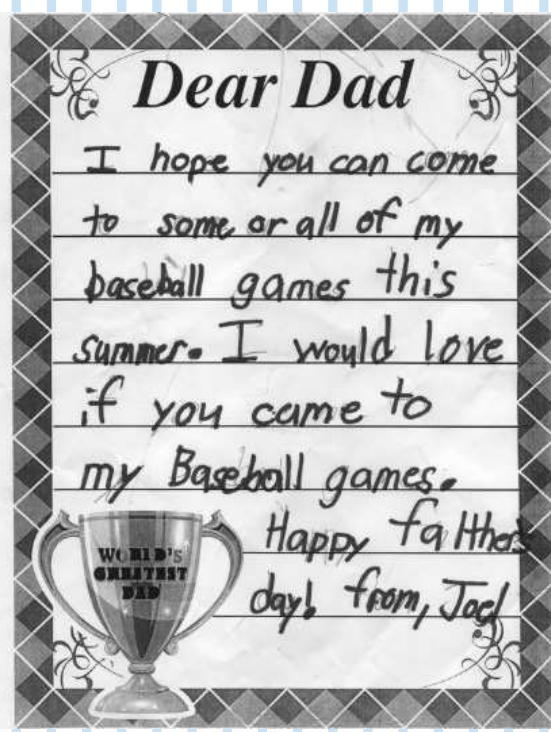 Dear Dad
I hope you can come
to some or all of my
baseball games this
summer. I would love
if you came to
my Baseball games.
Happy falthers
day! from, Joel
WORLD'S
GREATEST
DAD